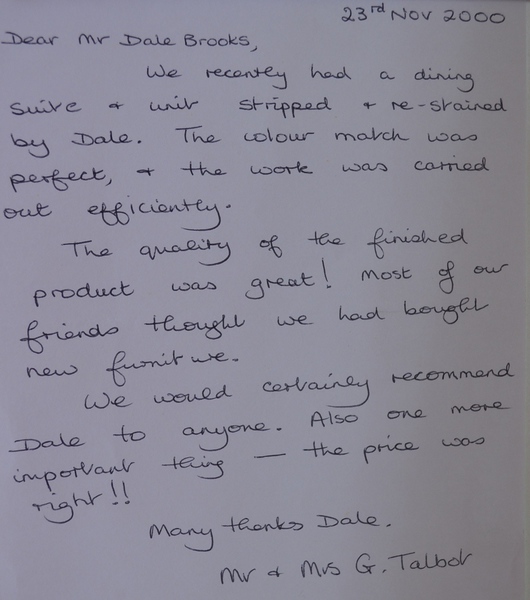 23rd Nov 2000
Dear Mr Dale Brooks,
We recently had a dining
suite & unit stripped & re-stained
by Dale. The colour match was
perfect, & the work was carried
out efficiently.
The quality of the finished
product was great! Most of our
friends thought we had bought
new furniture.
We would certainly recommend
Dale to anyone. Also one more
important thing — the price was
right!!
Many thanks Dale.
Mr & Mrs G. Talbot